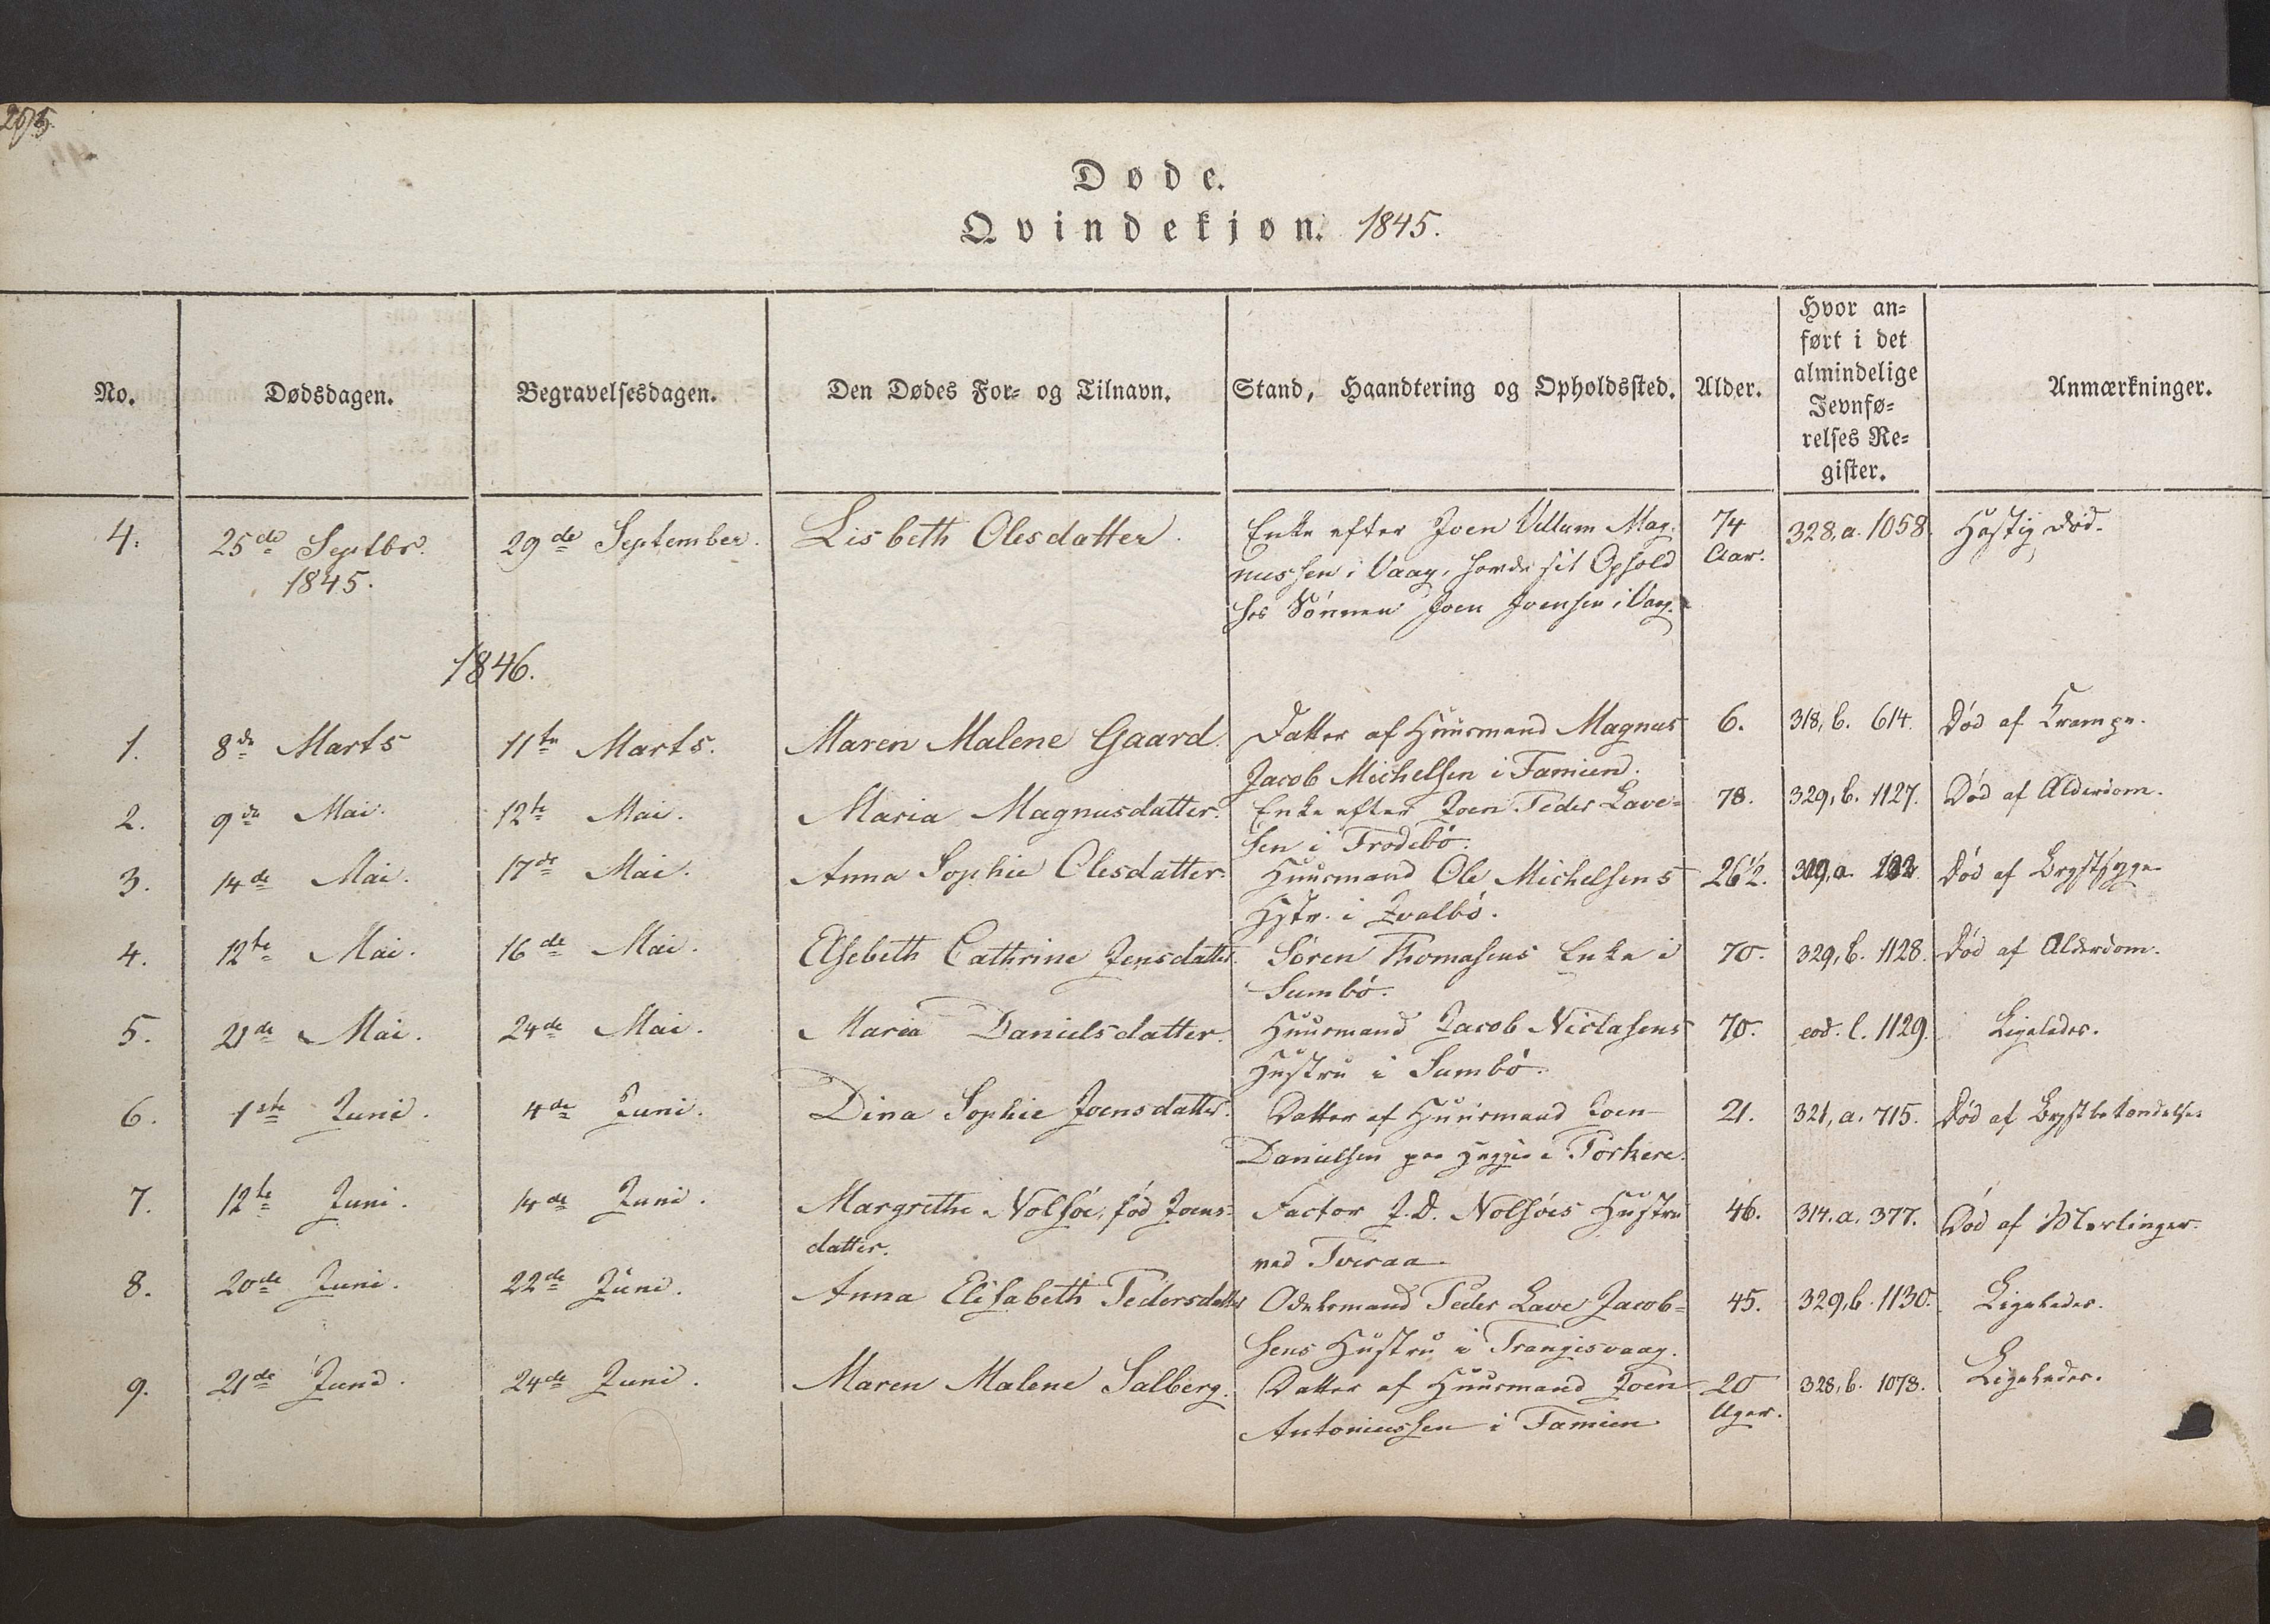 Døde.
Qvindekjøn. 1845.
No. Dødsdagen. Begravelsesdagen. Den Dødes For- og Tilnavn. Stand, Haandtering og Opholdssted. Alder. Hvor an-
ført i det
almindelige
Jevnfø-
relses Re-
gister. Anmærkninger.
4. 25de Septbr. 29de September. Lisbeth Olesdatter. Enke efter Joen Villum Mag- 74 328, a. 1058. Hastig Død.
1845. nussen i Vaag, havde sit Ophold Aar.
hos Sönnen Joen Joensen i Vaag.
1846.
1. 8de Marts 11te Marts. Maren Malene Gaard. Datter af Huusmand Magnus 6. 318, b. 614. Död af Krampe.
Jacob Michelsen i Famien.
2. 9de Mai. 12te Mai. Maria Magnusdatter. Enke efter Joen Peder Lave- 78. 329, b. 1127. Död af Alderdom.
sen i Frodebö.
3. 14de Mai. 17de Mai. Anna Sophie Olesdatter. Huusmand Ole Michelsens 26 1/2. Död af Brystsyge
Hstr. i Qvalbö.
4. 12te Mai. 16de Mai. Elsebeth Cathrine Jensdatter. Sören Thomasens Enke i 70. 329, b. 1128. Död af Alderdom.
Sumbö.
5. 21de Mai. 24de Mai. Maria Danielsdatter. Huusmand Jacob Niclasens 70. eod. l. 1129. Ligeledes.
Hustru i Sumbö.
6. 1ste Juni. 4de Juni. Dina Sophie Joensdatter. Datter af Huusmand Joen 21. 321, a. 715. Död af Brystbetændelse
Danielsen paa i Porkere.
7. 12te Juni. 14de Juni. Margrethe Nolsöe, föd Joens- Factor J. D. Nolsöes Hustru 46. 314. a. 377. Död af Mæslinger.
datter. ved Tveraa
8. 20de Juni. 22de Juni. Anna Elisabeth Pedersdatter Odelsmand Peder Lave Jacob- 45. 329, b. 1130. Ligeledes.
sens Hustru i Trangisvaag.
9. 21de Juni. 24de Juni. Maren Malene Salberg. Datter af Huusmand Joen 20 328, b. 1078. Ligeledes.
Antoniussen i Famien Uger.